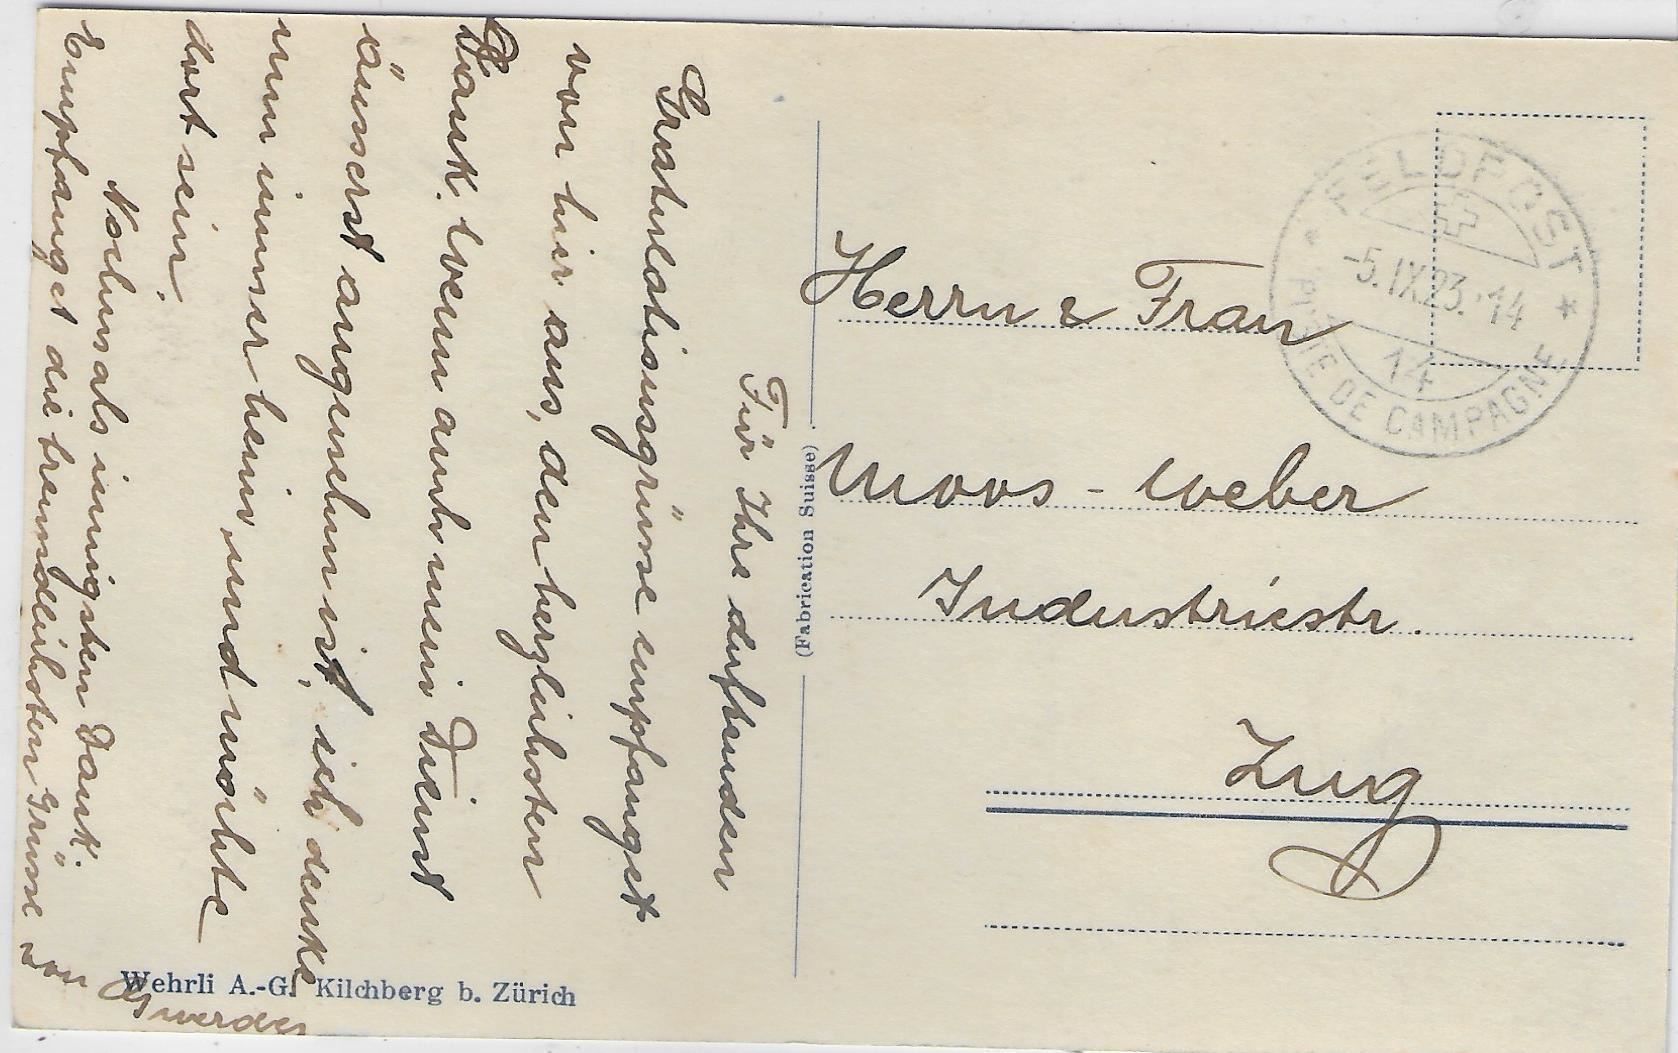 Für Ihre duftenden
Gratulatiusngrüsse empfanget
von hier aus, den herzlichsten
Dank. Wenn auch mein Dienst
äusserst angenehm ist, ich denke
nun immer heim, und möchte
dort sein.
Nochmals innigsten Dank.
Empfanget die freundlichsten Grüsse
von Gwerder
Wehrli A.-G. Kilchberg b. Zürich
(Fabrication Suisse)
FELDPOST
-5.IX.23.-14
14
POSTE DE CAMPAGNE
Herrn & Frau
Moos - Weber
Industriestr.
Zug